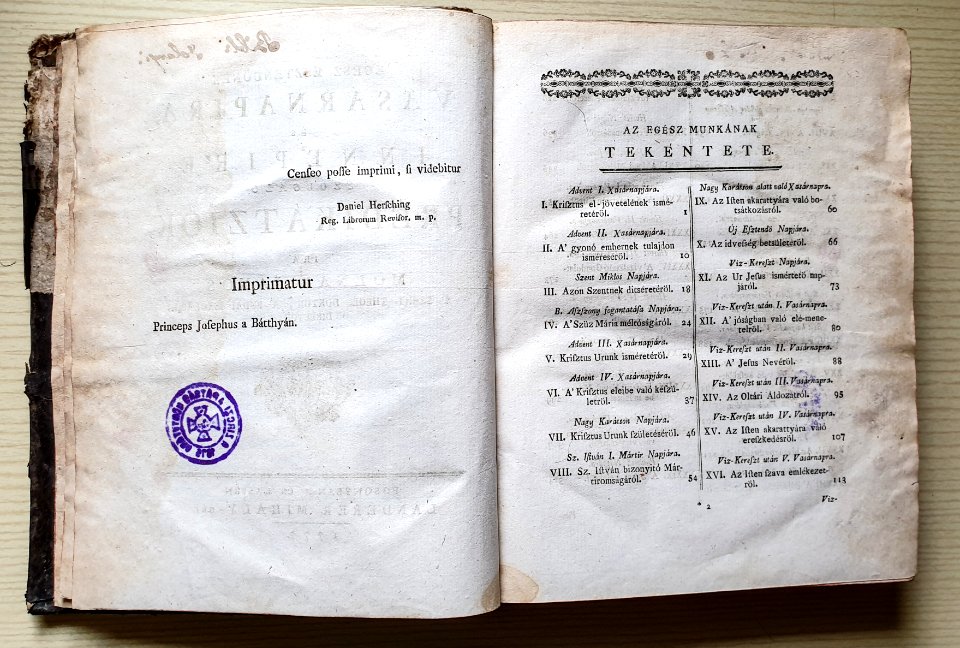 Censeo posse imprimi, si videbitur
Daniel Hersching
Reg. Librorum Revisor, m. p.
Imprimatur
Princeps Josephus a Bátthyán.
AZ EGÉSZ MUNKÁNAK
TEKÉNTETE.
Advent I. Xasárnapjára.
I. Krisztus el-jövetelének ismé-
retéröl. 1
Advent II. Xasárnapjára.
II. A' gyonó embernek tulajdon
isméreséröl. 10
Szent Miklos Napjára.
III. Azon Szentnek ditséretéröl. 18
B. Aszszony fogantatása Napjára.
IV. A' Szüz Mária méltóságáról. 24
Advent III. Xasárnapjára.
V. Krisztus Urunk isméretéröl. 29
Advent IV. Xasárnapjára.
VI. A' Krisztus eleibe való készü-
letröl. 37
Nagy Karátson Napjára.
VII. Krisztus Urunk születéséröl. 46
Sz. István I. Mártir Napjára.
VIII. Sz. István bizonyitó Már-
tiromságáról. 54
Nagy Karátson alatt való Xasárnapra.
IX. Az Isten akarattyára való bo-
tsátkozásról. 60
Uj Esztendö Napjára.
X. Az idvesség betsületéröl. 66
Viz-Kereszt Napjára.
XI. Az Ur Jesus ismértetö nap-
járól. 73
Viz-Kereszt után I. Vasárnapra.
XII. A' jóságban való elé-mene-
telröl. 80
Viz-Kereszt után II. Vasárnapra.
XIII. A' Jesus Nevéröl. 88
Viz-Kereszt után III. Vasárnapra.
XIV. Az Oltári Aldozatról. 95
Viz-Kereszt után IV. Vasárnapra.
XV. Az Isten akarattyára való
ereszkedésröl. 107
Viz-Kereszt után V. Vasárnapra.
XVI. Az Isten szava emlékezet-
röl. 113
* 2
Viz-